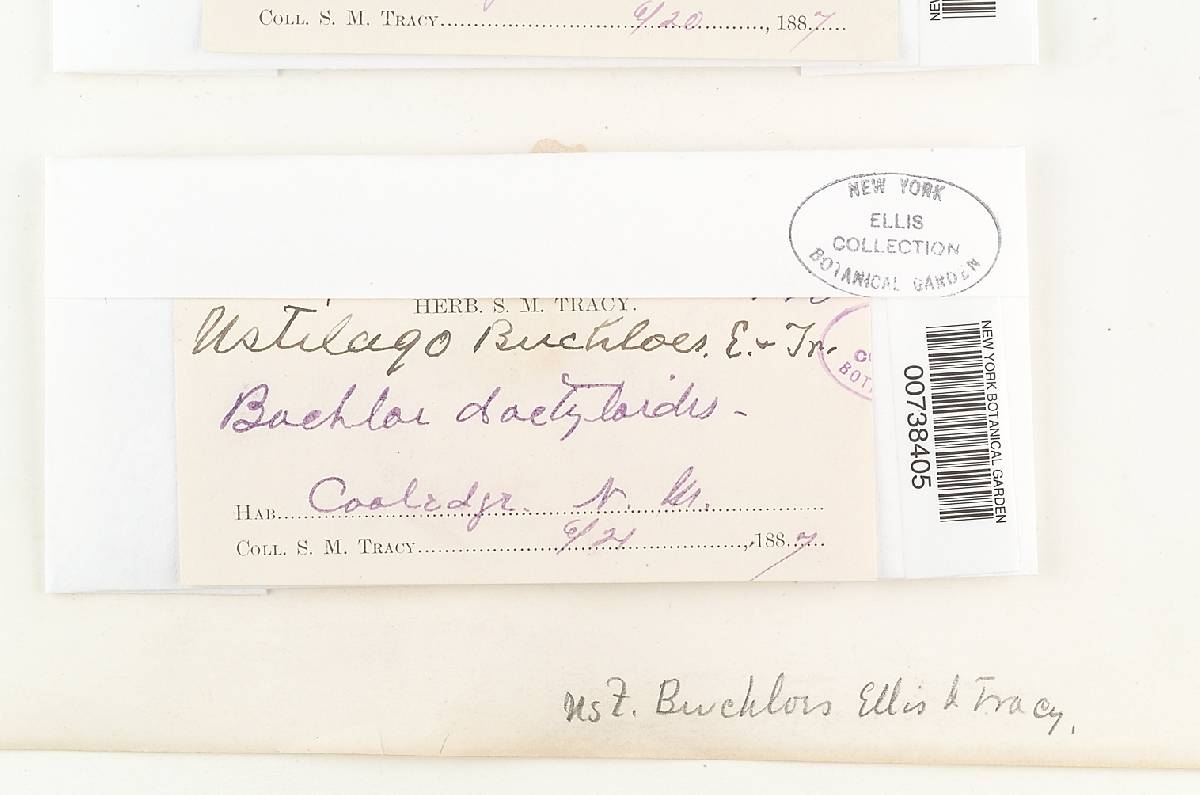 COLL. S. M. TRACY 6/20, 1887
NEW
NEW YORK
ELLIS
COLLECTION
BOTANICAL GARDEN
HERB. S. M. TRACY.
Ustilago Buchloes. E. & Tr.
BOT
Buchloe dactyloides -
HAB. Coolidge. N. M.
COLL. S. M. TRACY 6/21, 1887
NEW YORK BOTANICAL GARDEN
00738405
Ust. Buchloes Ellis & Tracy.